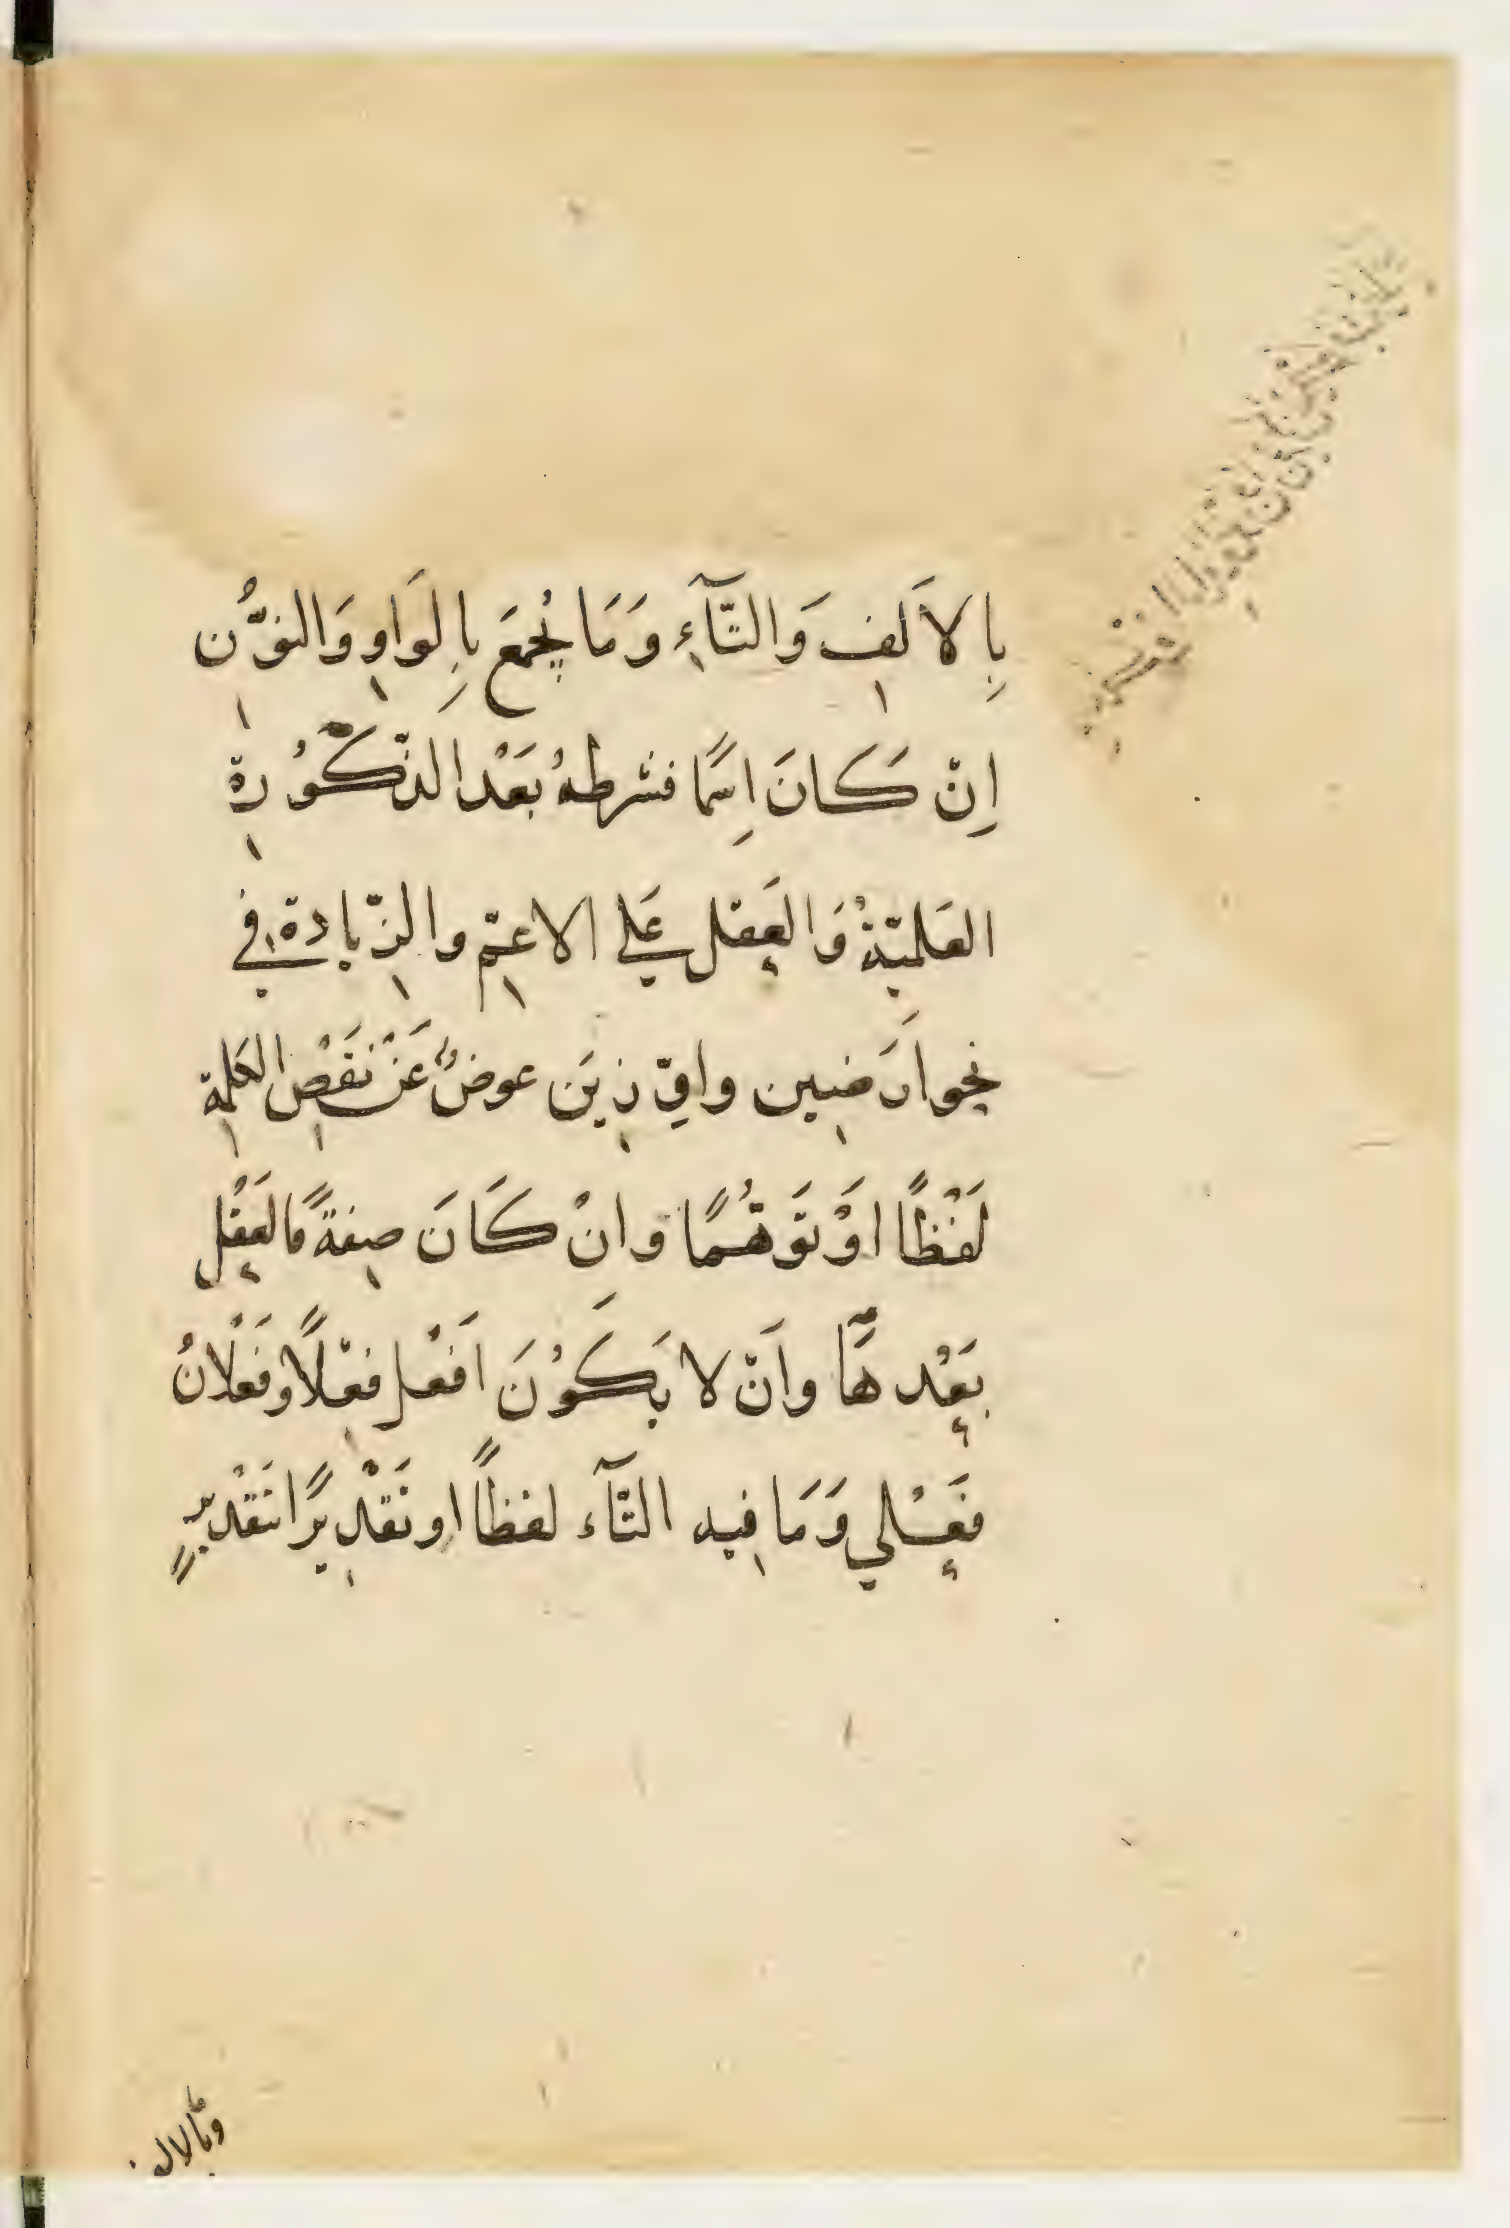 بِالاَلِفِ وَالتَّآءِ وَمَا يُجْمَعَ بِالوَاوِ وَالنُّوْنِ
اِنْ كَانَ اِسْمًا فشرطهُ بَعْدَ الذُّكُوْرة
العَلميّةُ وَالعَقل عَلي الاعمّ والزّيادة في
نحو ارَضين واوّزيَن عوضٌ عَنْ نَقْصِ الكلمة
لَفْظًا اوْ تَوَهُّمًا وانْ كَانَ صفةً فالعَقْل
بَعْدهَا واَنْ لا يَكَوْنَ اَفْعل فعْلًا وفَعْلانُ
فَعْلي وَمَا فيه التَّآء لفظًا او تَقْديرًا تَقْدير
وبالال